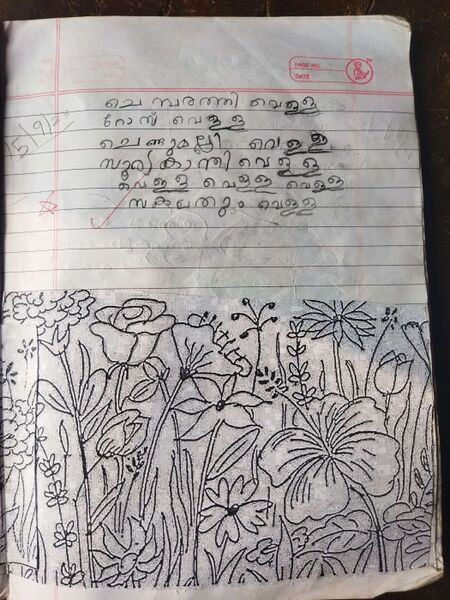 PAGE NO.
DATE
5/9/23
ചെ മ്പരത്തി വെള്ള
റോസ് വെള്ള
ചെണ്ടുമല്ലി വെള്ള
സൂര്യകാന്തി വെള്ള
വെള്ള വെള്ള വെള്ള
സകലതും വെള്ള